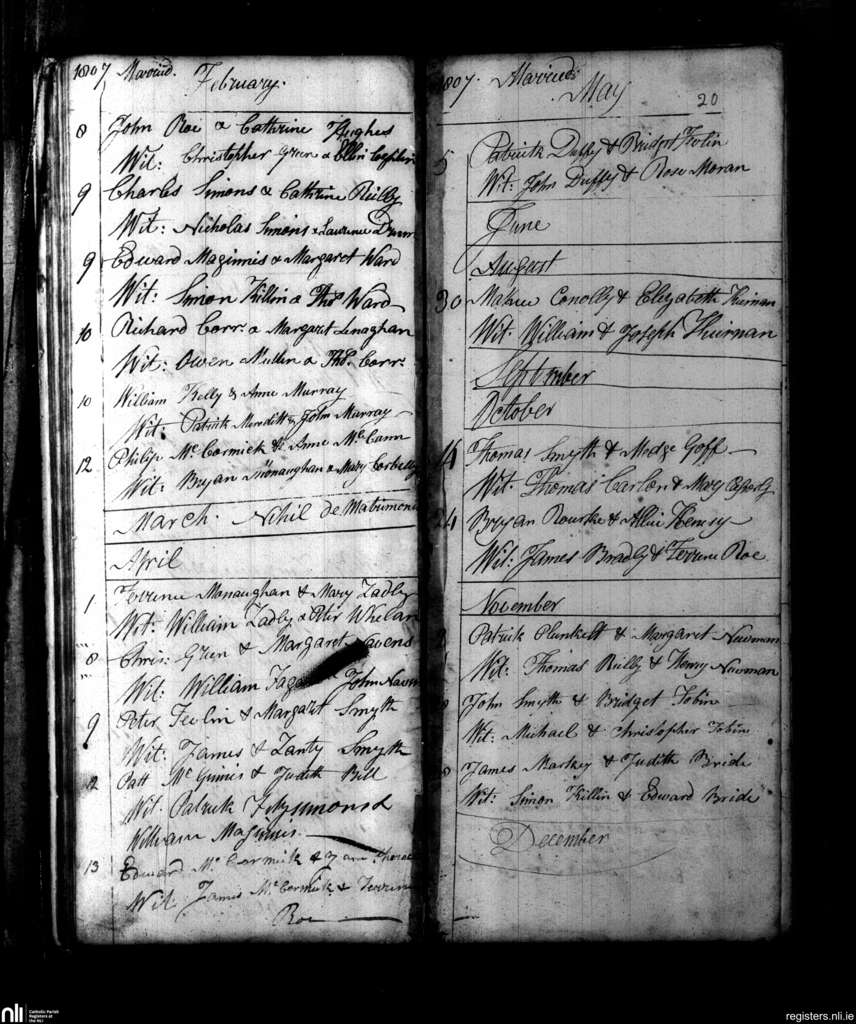 1807 Married. February.
8 John Roe & Cathrine Hughes
Wit: Christopher Green & Ellin
9 Charles Simons & Cathrine Reilly
Wit: Nicholas Simons & Laurence
9 Edward Maginnis & Margaret Ward
Wit: Simon Killin & Thos. Ward
10 Richard Corr. & Margaret Lenaghan
Wit: Owen Mullin & Thos. Corr.
10 William Kelly & Anne Murray
Wit: Patrick Meredith & John Murray
12 Philip McCormick & Anne McCann
Wit: Bryan Monaughan & Mary Corbelly
March. Nihil de Matrimon
April
1 Terrence Monaughan & Mary Ladly
Wit: William Ladly & Peter Whelan
8 Chris: Green & Margaret Navens
Wit: William John
9 Peter & Margaret Smyth
Wit: James & Lanty Smyth
12 Patt McGinnis & Judith Bill
Wit. Patrick Fitzsimons &
William Maginnis.
13 Edward McCormick &
Wit. James McCormick & Terrence
Roe
1807. Married
May
20
5 Patrick Duffy & Bridget
Wit: John Duffy & Rose Moran
June
August
30 Conolly & Elizabeth Kiernan
Wit. William & Joseph Kiernan
September
October
14 Thomas Smyth & Modge Goff
Wit. Thomas Carlon & Mary
24 Bryan Rourke & Allin
Wit: James Bradly & Terrence Roe
November
Patrick Plunkett & Margaret Newman
Wit: Thomas Reilly & Henry Newman
John Smyth & Bridget Tobin
Wit: Michael & Christopher Tobin
8 James Markey & Judith Bride
Wit: Simon Killin & Edward Bride
December
nli Catholic Parish
Registers at
the NLI
registers.nli.ie